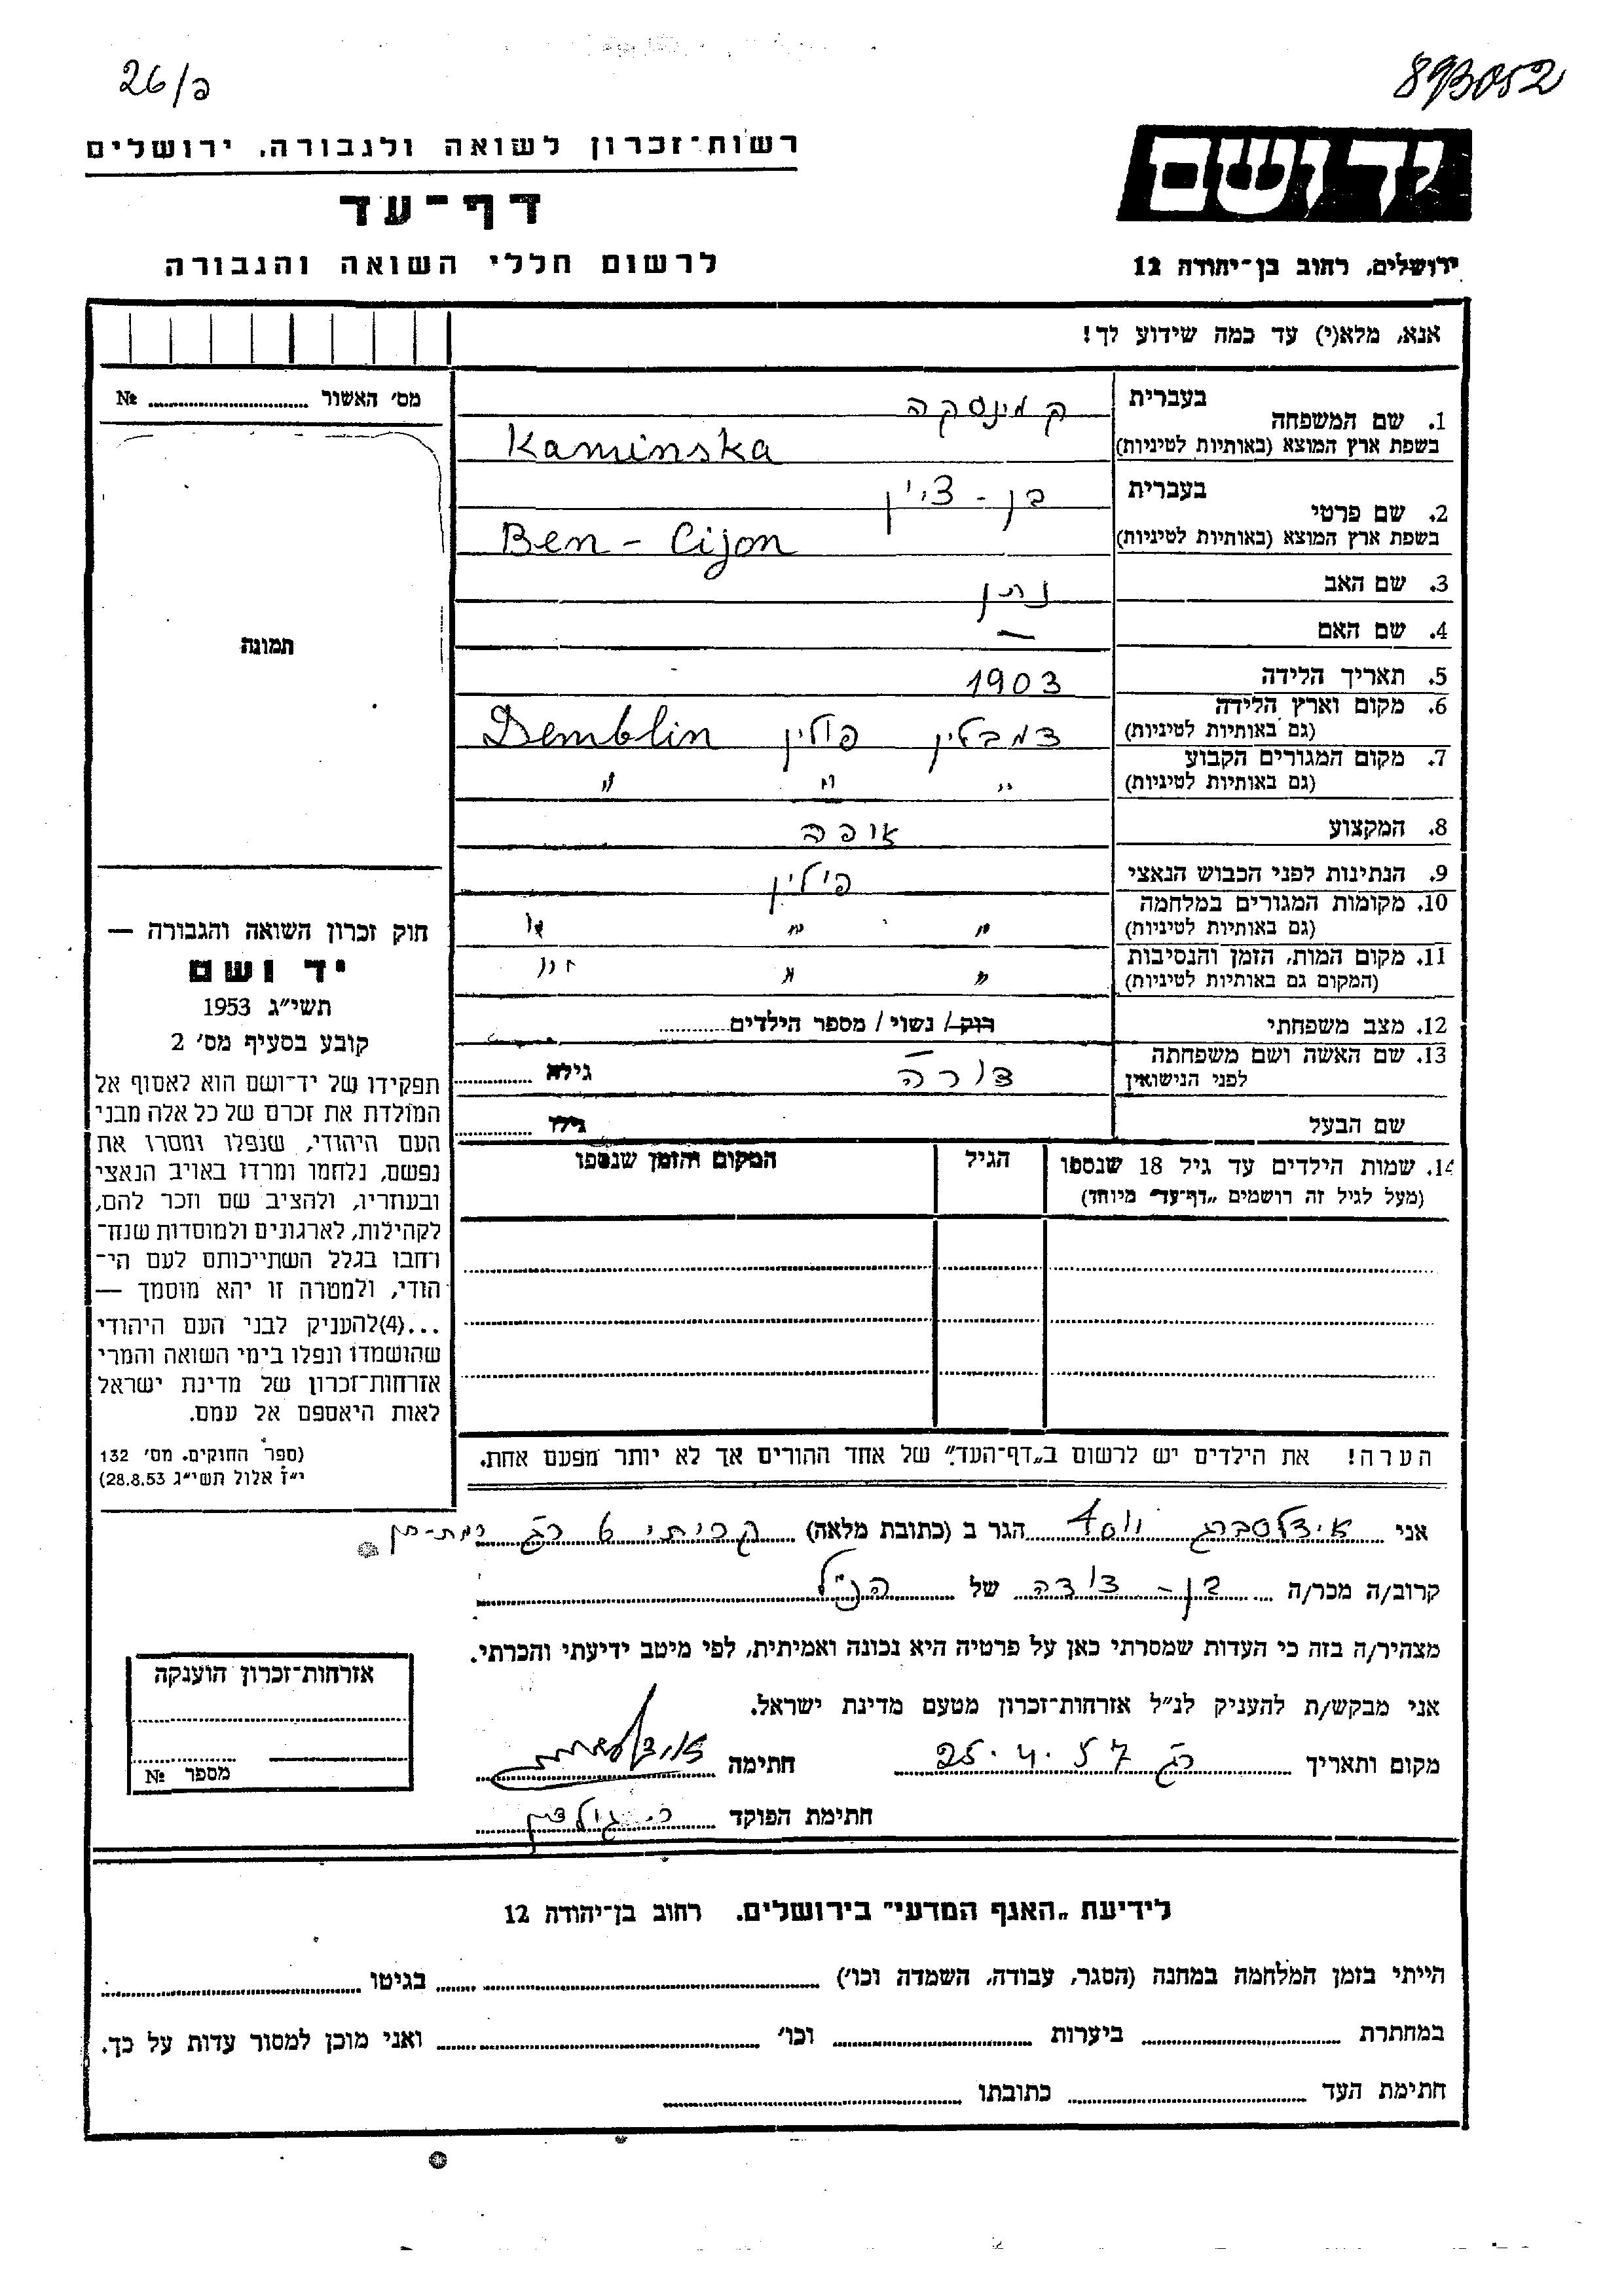 26/כ
893052
רשות־זכרון לשואה ולגבורה, ירושלים
ידושם
דף־עד
ירושלים, רחוב בן־יהודה 12
לרשום חללי השואה והגבורה
אנא, מלא(י) עד כמה שידוע לך!
מס׳ האשור № 
1. שם המשפחה
בעברית קמינסקה
בשפת ארץ המוצא (באותיות לטיניות) Kaminska
2. שם פרטי
בעברית בן - ציון
בשפת ארץ המוצא (באותיות לטיניות) Ben - Cijon
3. שם האב נתן
4. שם האם —
תמונה
5. תאריך הלידה 1903
6. מקום וארץ הלידה דמבלין פולין Demblin
(גם באותיות לטיניות)
7. מקום המגורים הקבוע " " "
(גם באותיות לטיניות)
8. המקצוע אופה
9. הנתינות לפני הכבוש הנאצי פולין
10. מקומות המגורים במלחמה " " "
(גם באותיות לטיניות)
11. מקום המות, הזמן והנסיבות " " "
(המקום גם באותיות לטיניות)
12. מצב משפחתי רוק/ נשוי/ מספר הילדים
13. שם האשה ושם משפחתה דורה גילה
לפני הנישואין
שם הבעל גילו
14. שמות הילדים עד גיל 18 שנספו הגיל המקום והזמן שנספו
(מעל לגיל זה רושמים „דף־עד״ מיוחד)
חוק זכרון השואה והגבורה —
יד ושם
תשי״ג 1953
קובע בסעיף מס׳ 2
תפקידו של יד־ושם הוא לאסוף אל
המולדת את זכרם של כל אלה מבני
העם היהודי, שנפלו ומסרו את
נפשם, נלחמו ומרדו באויב הנאצי
ובעוזריו, ולהציב שם וזכר להם,
לקהילות, לארגונים ולמוסדות שנח־
רחבו בגלל השתייכותם לעם הי־
הודי, ולמטרה זו יהא מוסמך —
...(4)להעניק לבני העם היהודי
שהושמדו ונפלו בימי השואה והמרי
אזרחות־זכרון של מדינת ישראל
לאות היאספם אל עמם.
(ספר החוקים, מס׳ 132
י״ז אלול תשי״ג 28.8.53)
הערה! את הילדים יש לרשום ב„דף־העד״ של אחד ההורים אך לא יותר מפעם אחת.
אני אידלסברג יוסף הגר ב (כתובת מלאה) 6 רג רמת-גן
קרוב/ה מכר/ה בן - דודה של הנ״ל
מצהיר/ה בזה כי העדות שמסרתי כאן על פרטיה היא נכונה ואמיתית, לפי מיטב ידיעתי והכרתי.
אני מבקש/ת להעניק לנ״ל אזרחות־זכרון מטעם מדינת ישראל.
מקום ותאריך רג 25.4.57 חתימה
חתימת הפוקד
אזרחות־זכרון הוענקה
מספר №
לידיעת „האגף המדעי״ בירושלים, רחוב בן־יהודה 12
הייתי בזמן המלחמה במחנה (הסגר, עבודה, השמדה וכו׳) בגיטו
במחתרת ביערות וכו׳ ואני מוכן למסור עדות על כך.
חתימת העד כתובתו